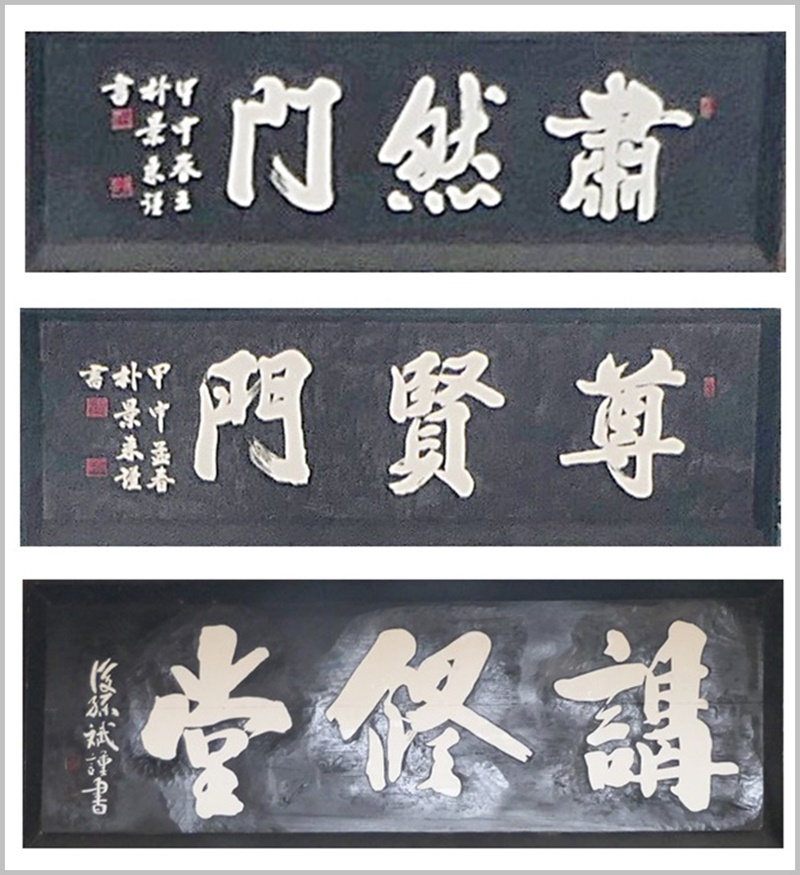 肅然门
甲申春
朴景來謹
書
尊賢門
甲申孟春
朴景來謹
書
講修堂
後孫斌謹書